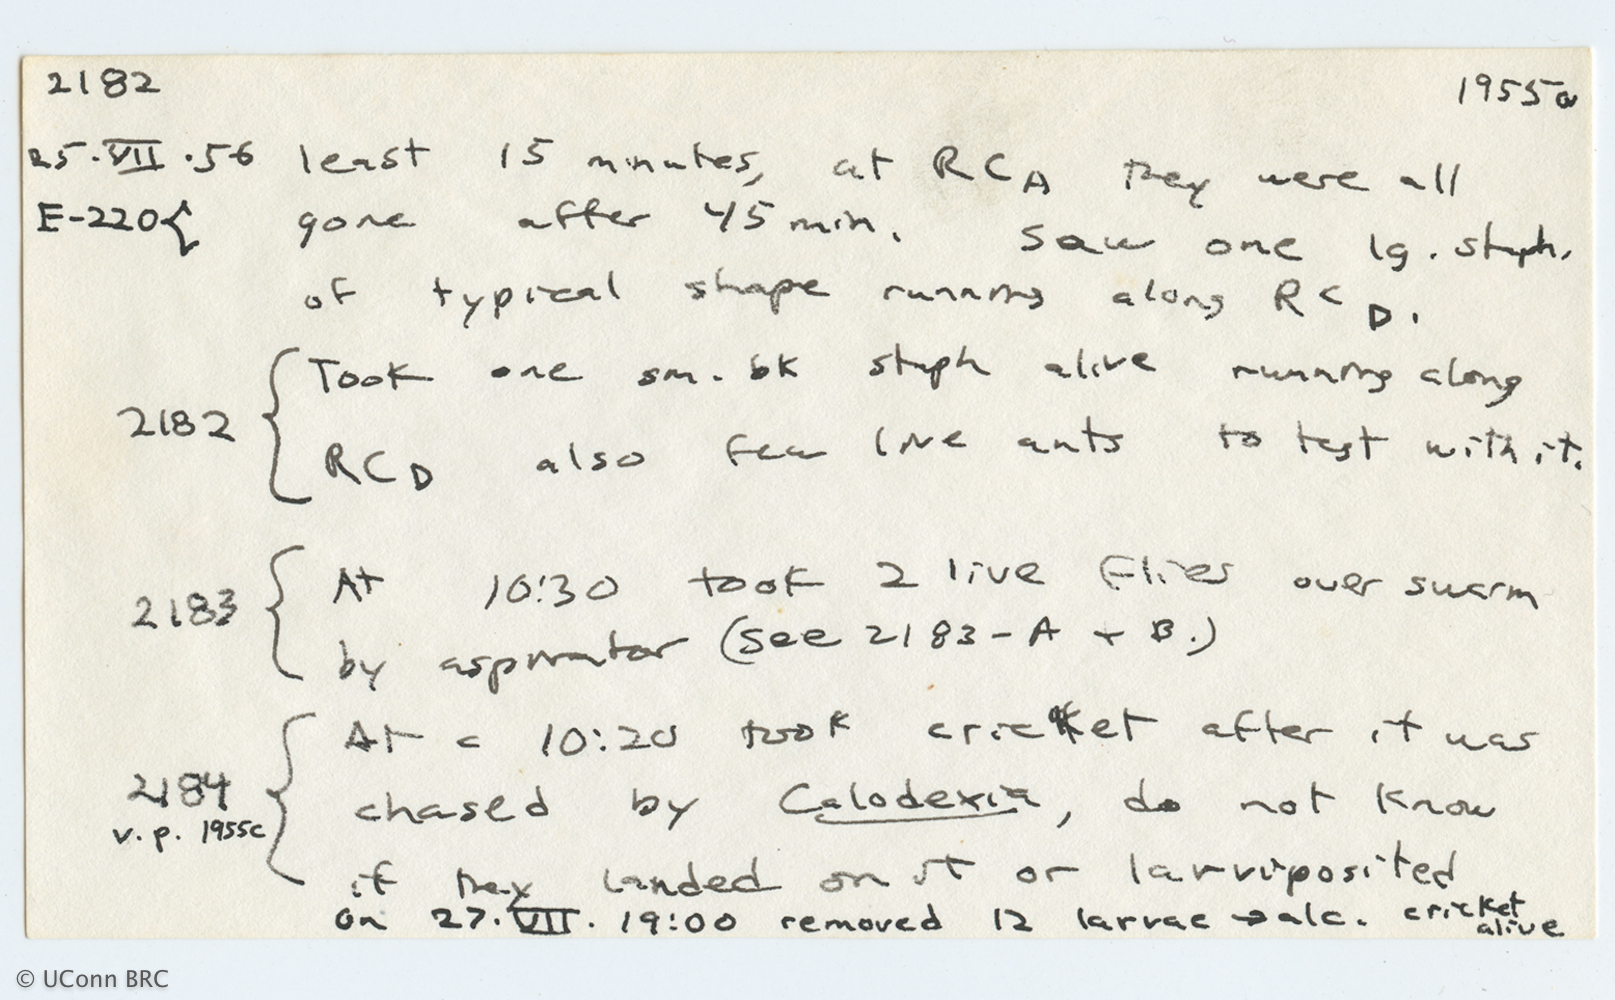 2182 1955a
25.VII.56 least 15 minutes, at RCA they were all
E-220{ gone after 45 min. Saw one lg. staph.
of typical shape running along RCD.
Took one sm. bk staph alive running along
2182 { RCD also few live ants to test with it.
At 10:30 took 2 live flies over swarm
2183 { by aspirator (see 2183-A + B.)
At c 10:20 took cricket after it was
2184 { chased by Calodexia, do not know
v. p. 1955c
if they landed on it or larviposited
on 27.VII. 19:00 removed 12 larvae → alc. cricket
alive
© UConn BRC